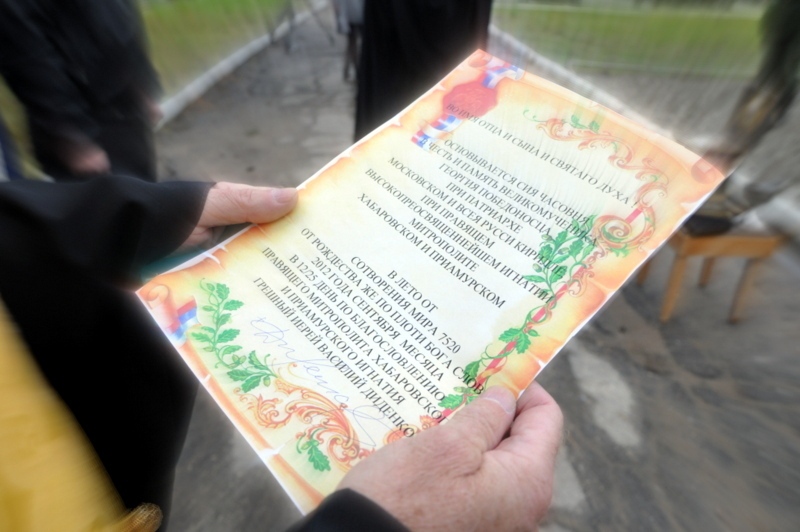 ВО ИМЯ ОТЦА И СЫНА И СВЯТАГО ДУХА
ОСНОВЫВАЕТСЯ СИЯ ЧАСОВНЯ
В ЧЕСТЬ И ПАМЯТЬ ВЕЛИКОМУЧЕНИКА
ГЕОРГИЯ ПОБЕДОНОСЦА
ПРИ ПАТРИАРХЕ
МОСКОВСКОМ И ВСЕЯ РУССИ КИРИЛЛЕ
ПРИ ПРАВЯЩЕМ
ВЫСОКОПРЕОСВЯЩЕННЕЙШЕМ ИГНАТИИ
МИТРОПОЛИТЕ
ХАБАРОВСКОМ И ПРИАМУРСКОМ
В ЛЕТО ОТ
СОТВОРЕНИЯ МИРА 7520
ОТ РОЖДЕСТВА ЖЕ ПО ПЛОТИ БОГА СЛОВА
2012 ГОДА СЕНТЯБРЯ МЕСЯЦА
В 12/25 ДЕНЬ ПО БЛАГОСЛОВЛЕНИЮ
ПРАВЯЩЕГО МИТРОПОЛИТА ХАБАРОВСКОГО
И ПРИАМУРСКОГО ИГНАТИЯ
ГРЕШНЫЙ ИЕРЕЙ ВАСИЛИЙ ДИДЕНКО